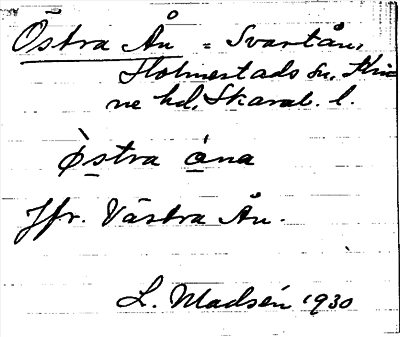 Östra Ån = Svartån,
Holmestads sn, Kin
ne hd, Skarab. l.
òstra ána
Jfr. Västra Ån.
L. Madsén 1930